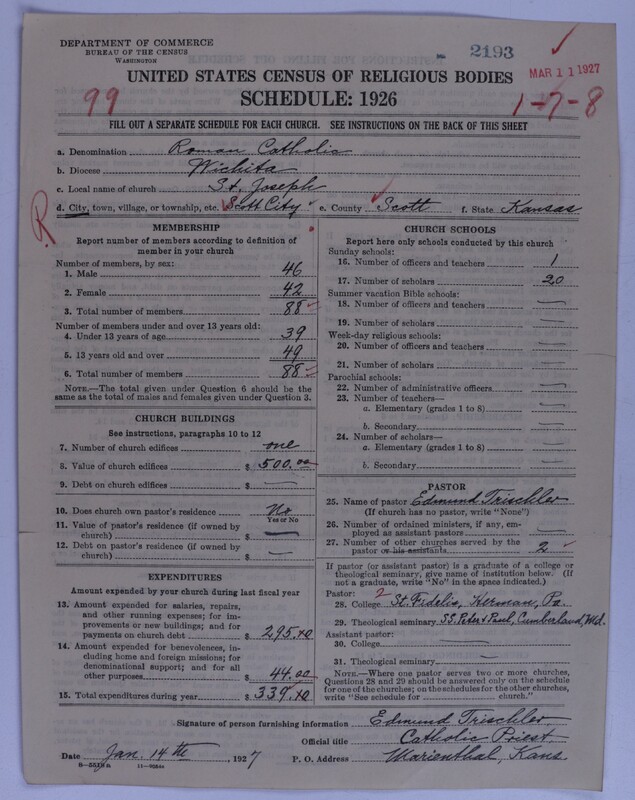 DEPARTMENT OF COMMERCE
BUREAU OF THE CENSUS
WASHINGTON
2193
MAR 11 1927
UNITED STATES CENSUS OF RELIGIOUS BODIES
99
SCHEDULE: 1926
1-7-8
FILL OUT A SEPARATE SCHEDULE FOR EACH CHURCH. SEE INSTRUCTIONS ON THE BACK OF THIS SHEET
a. Denomination Roman Catholic
b. Diocese Wichita
c. Local name of church St. Joseph
d. City, town, village, or township, etc. Scott City e. County Scott f. State Kansas
R
MEMBERSHIP
Report number of members according to definition of
member in your church
Number of members, by sex:
1. Male 46
2. Female 42
3. Total number of members 88
Number of members under and over 13 years old:
4. Under 13 years of age 39
5. 13 years old and over 49
6. Total number of members 88
NOTE.—The total given under Question 6 should be
the same as the total of males and females given under Question 3.
CHURCH BUILDINGS
See instructions, paragraphs 10 to 12
7. Number of church edifices one
8. Value of church edifices $ 500.00
9. Debt on church edifices $ —
10. Does church own pastor's residence No
Yes or No
11. Value of pastor's residence (if owned by
church) $ —
12. Debt on pastor's residence (if owned by
church) $ —
EXPENDITURES
Amount expended by your church during last fiscal year
13. Amount expended for salaries, repairs,
and other running expenses; for im-
provements or new buildings; and for
payments on church debt $ 295.40
14. Amount expended for benevolences, in-
cluding home and foreign missions; for
denominational support; and for all
other purposes $ 44.00
15. Total expenditures during year $ 339.40
CHURCH SCHOOLS
Report here only schools conducted by this church
Sunday schools:
16. Number of officers and teachers 1
17. Number of scholars 20
Summer vacation Bible schools:
18. Number of officers and teachers —
19. Number of scholars —
Week-day religious schools:
20. Number of officers and teachers —
21. Number of scholars —
Parochial schools:
22. Number of administrative officers —
23. Number of teachers—
a. Elementary (grades 1 to 8) —
b. Secondary —
24. Number of scholars—
a. Elementary (grades 1 to 8) —
b. Secondary —
PASTOR
25. Name of pastor Edmund Trischler
(If church has no pastor, write "None")
26. Number of ordained ministers, if any, em-
ployed as assistant pastors —
27. Number of other churches served by the
pastor or his assistants 2
If pastor (or assistant pastor) is a graduate of a college or
theological seminary, give name of institution below. (If
not a graduate, write "No" in the space indicated.)
Pastor: 2
28. College St. Fidelis, Herman, Pa.
29. Theological seminary SS. Peter & Paul, Cumberland, Md.
Assistant pastor:
30. College —
31. Theological seminary —
NOTE.—Where one pastor serves two or more churches,
Questions 28 and 29 should be answered only on the schedule
for one of the churches; on the schedules for the other churches,
write "See schedule for church."
Signature of person furnishing information Edmund Trischler
Official title Catholic Priest
Date Jan. 14th, 1927 P. O. Address Marienthal, Kans.